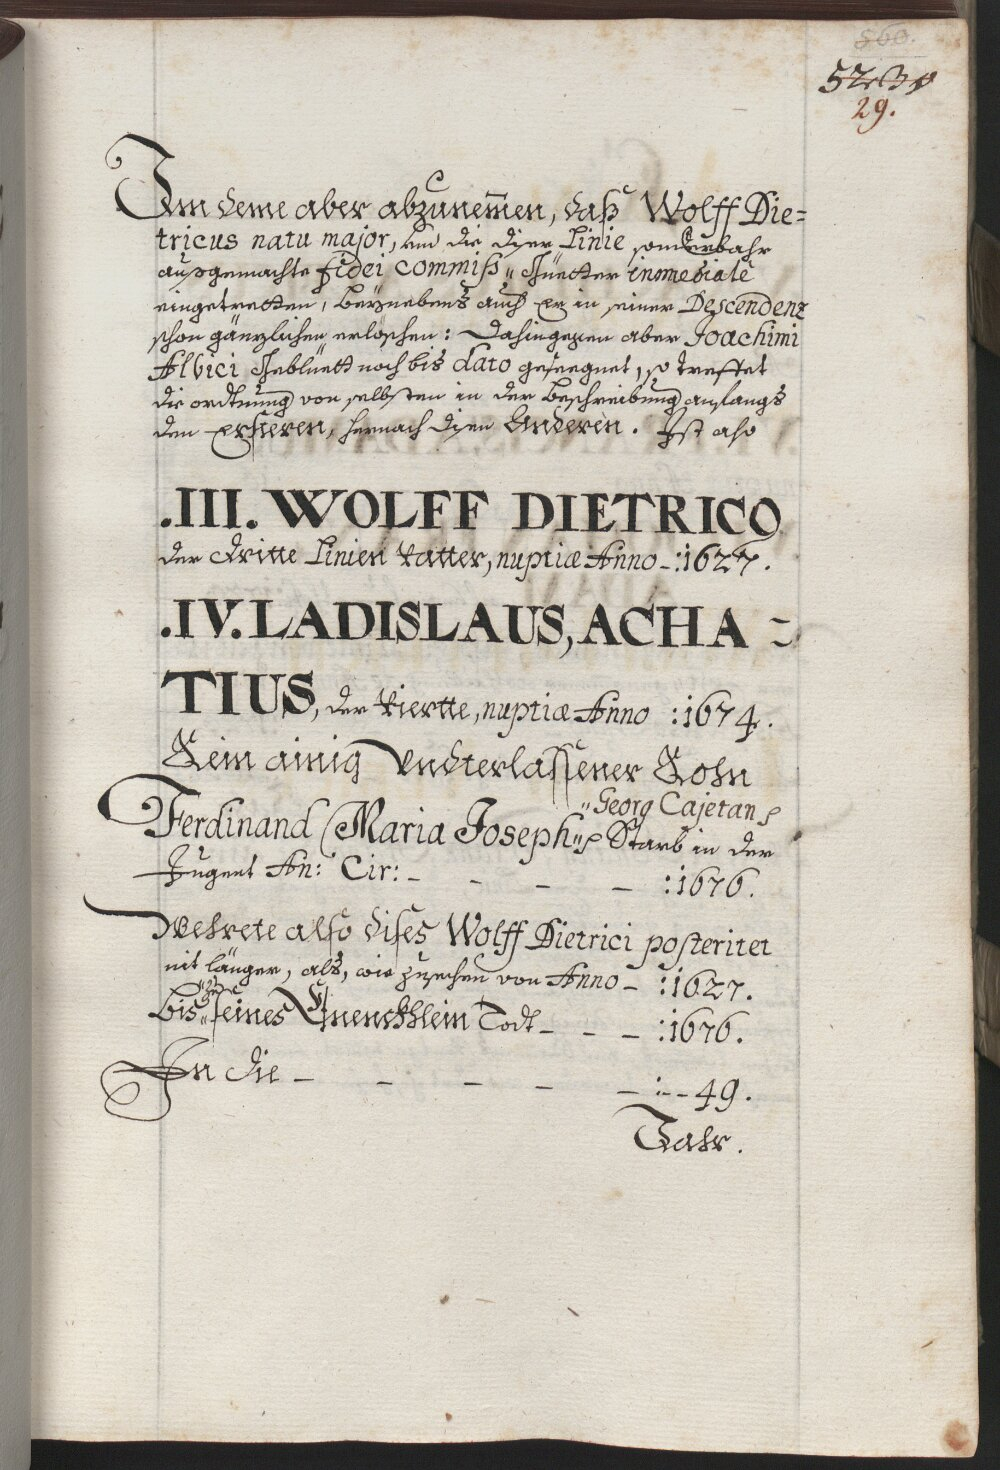 560.
29.
Im deme aber abzunem̄en, daß Wolff Die=
tricus natu major, und die diser Linie sonderbahr
außgemachte fidei commiß„ Güetter immediate
eingetretten, beynebens auch Er in seiner Descendenz
schon gänzlichen erloschen: Dahingegen aber Joachimi
Albici Geblüett noch bis dato geseegnet, so treffet
die ordtnung von selbsten in der beschreibung anfangs
den Ersteren, hernach disen Anderen. Ist also
.III. WOLFF DIETRICO
der dritte Linien Vatter, nuptiæ Anno -:1627.
.IV. LADISLAUS, ACHA=
TIUS, der Viertte, nuptiæ Anno :1674.
Sein ainig Underlassener Sohn
„Georg Cajetan
Ferdinand Maria Joseph„ Starb in der
Jugent An: Cir: - - - - :1676.
Wehrete also dises Wolff Dietrici posteritet
nit länger, als, wie zusechen von Anno - :1627.
bis „zue„ seines Eneckhlein Todt - - - :1676.
In die - - - - - :-- 49.
Jahr.